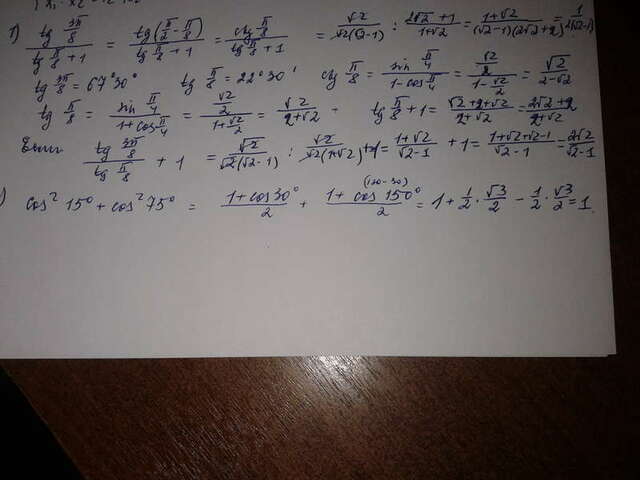 1) tg 3π/8 / tg π/8 + 1 = tg(π/2 - π/8) / tg π/8 + 1 = ctg π/8 / tg π/8 + 1 = √2 / √2(√2-1) : 2√2+1 / 1+√2 = 1+√2 / (√2-1)(2√2+2) = 1 / 2(√2-1)
tg 3π/8 = 67°30° tg π/8 = 22°30' ctg π/8 = sin π/4 / 1-cos π/4 = √2/2 / 1-√2/2 = √2 / 2-√2
tg π/8 = sin π/4 / 1+cos π/4 = √2/2 / 1+√2/2 = √2 / 2+√2 tg π/8 + 1 = √2+2+√2 / 2+√2 = 2√2+2 / 2+√2
Если tg 3π/8 / tg π/8 + 1 = √2 / √2(√2-1) : √2 / √2(1+√2) +1 = 1+√2 / √2-1 + 1 = 1+√2+√2-1 / √2-1 = 2√2 / √2-1
) cos² 15° + cos² 75° = 1+cos30° / 2 + 1+cos 150° (180-30) / 2 = 1 + 1/2 · √3/2 - 1/2 · √3/2 = 1.